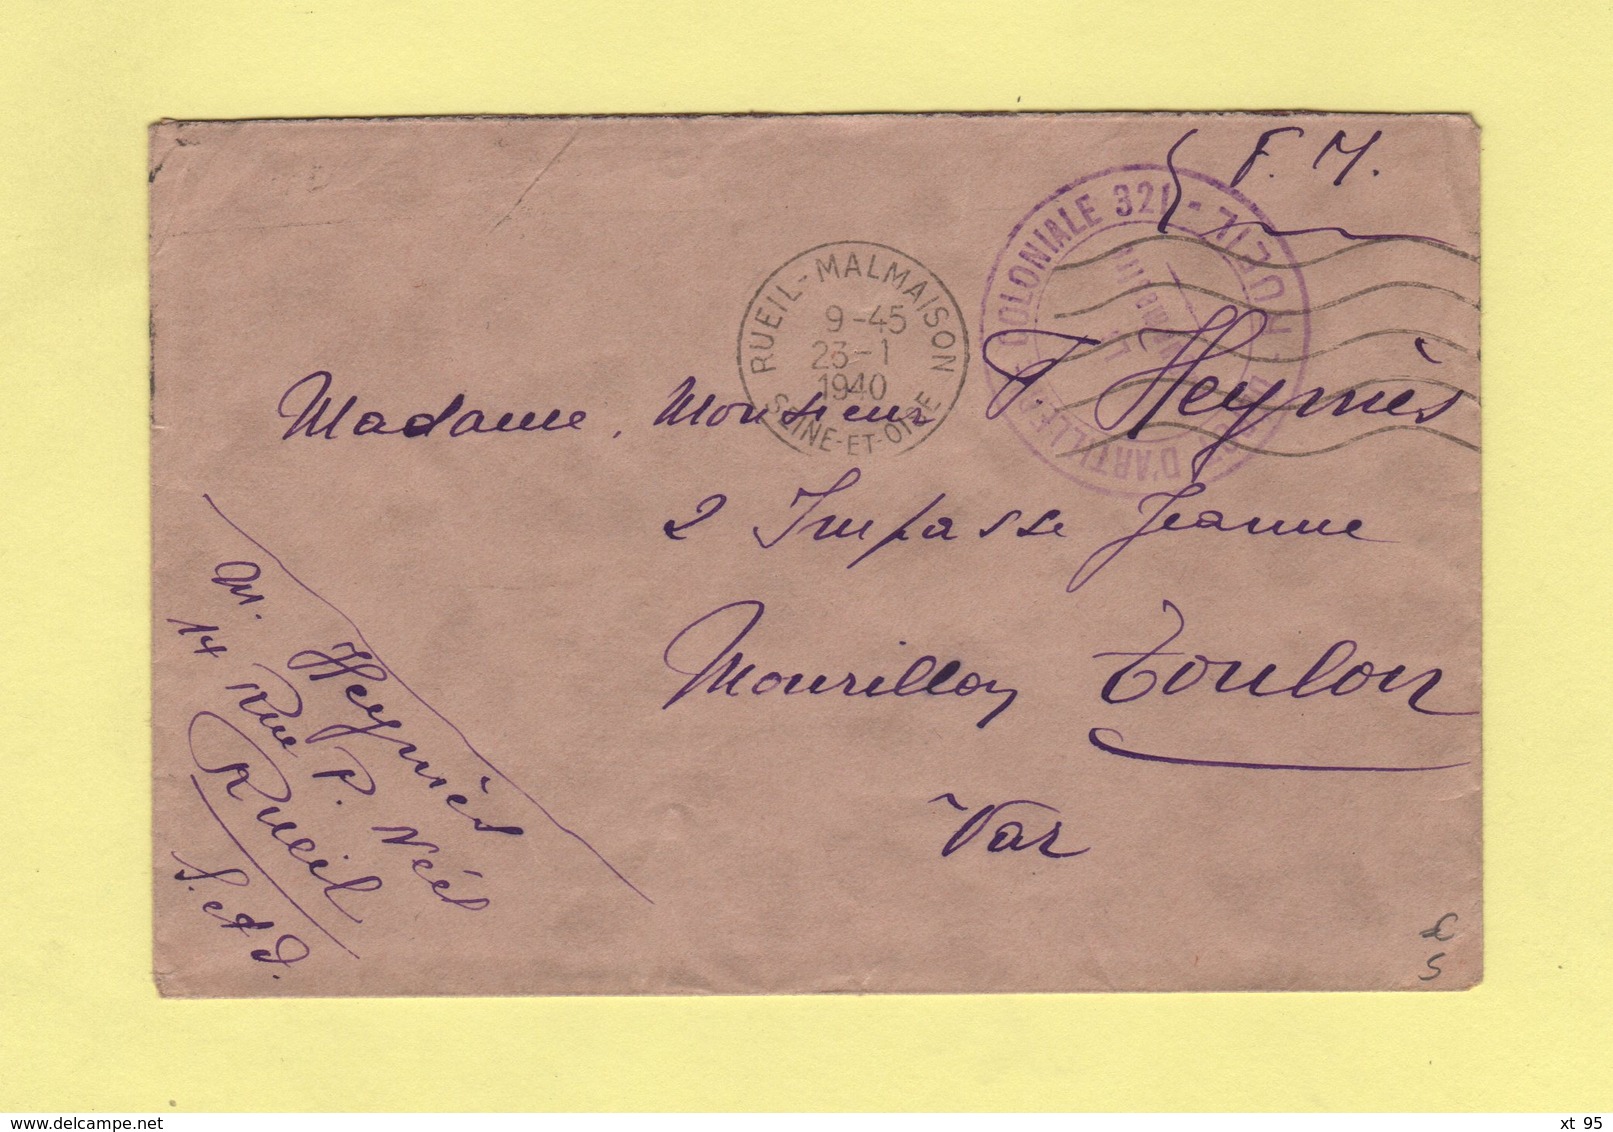 F. M.
COLONIALE 321 - RUEIL
D'ARTILLERIE
RUEIL-MALMAISON
9-45
23-1
1940
SEINE-ET-OISE
Madame, Monsieur F. Heymès
2 Impasse Jeanne
Mourillon Toulon
Var
M. Heymès
14 Rue P. Néel
Rueil
S. et O.
delcampe.net
xt_95